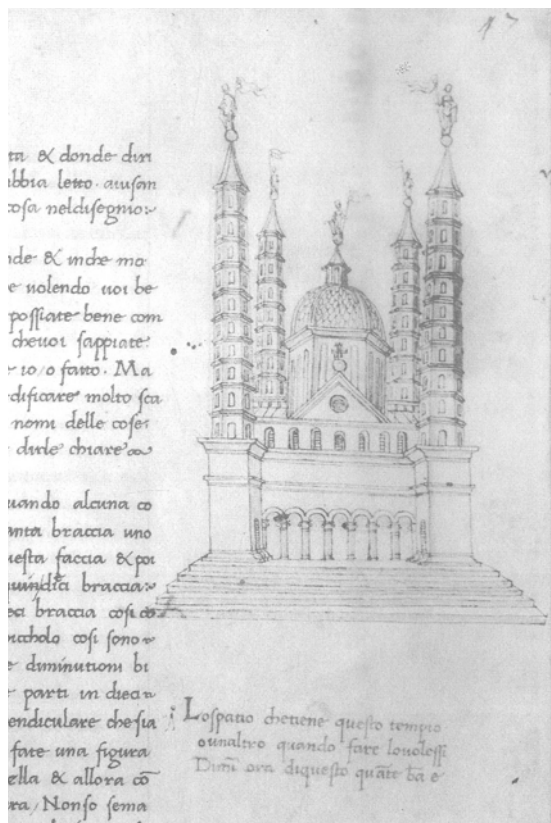 47
ta & donde diri
abbia letto. aiusan
cosa neldisegnio:~
nde & inche mo
e uolendo uoi be
possiate bene com
cheuoi sappiate
e io/o fatto. Ma
dificare molto sca
nomi delle cose:
dirle chiare
uando alcuna co
anta braccia uno
uesta faccia & poi
uindici braccia:~
eci braccia cosi co
picholo cosi sono
e diminutioni bi
e parti in dieci
endiculare chesia
fate una figura
ella & allora cō
ora/Nonso sema
Lospatio chetiene questo tempio
ounaltro quando fare louolessi
Dimi ora diquesto quāte ba e